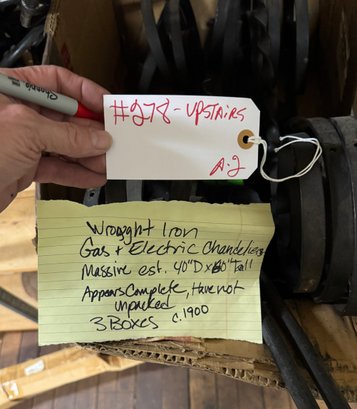 Sharpie
#278 - UPSTAIRS
A-2
Wrought Iron
Gas + Electric Chandeliers
Massive est. 40"D x 60" Tall
Appears Complete, Have not
unpacked
3 Boxes c. 1900